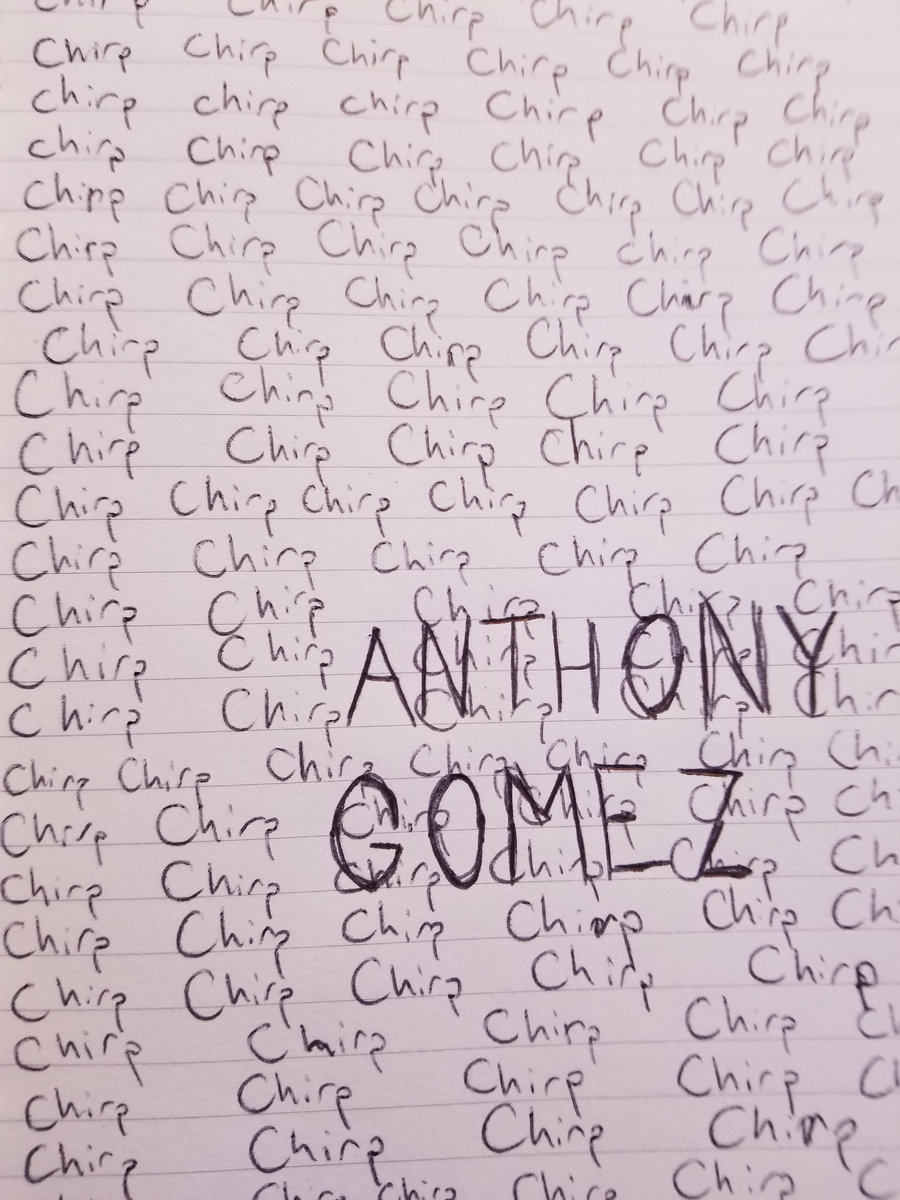 Chirp Chirp Chirp Chirp Chirp
Chirp Chirp Chirp Chirp Chirp Chirp
Chirp chirp chirp Chirp Chirp Chirp
chirp Chirp Chirp Chirp Chirp Chirp
Chirp Chirp Chirp Chirp Chirp Chirp Chirp
Chirp Chirp Chirp Chirp Chirp Chirp
Chirp Chirp Chirp Chirp Chirp Chirp
Chirp Chirp Chirp Chirp Chirp Chir
Chirp Chirp Chirp Chirp Chirp
Chirp Chirp Chirp Chirp Chirp
Chirp Chirp Chirp Chirp Chirp Chirp Ch
Chirp Chirp Chirp Chirp Chirp
Chirp Chirp Chirp Chirp Chirp
Chirp Chirp Chirp Chirp Chir
ANTHONY
Chirp Chirp Chirp Chirp Chir
Chirp Chirp Chirp Chirp Chirp Chirp Chi
Chirp Chirp Chirp Chirp Chirp Ch
GOMEZ
Chirp Chirp Chirp Chirp Chirp Ch
Chirp Chirp Chirp Chirp Chirp Ch
Chirp Chirp Chirp Chirp Chirp
Chirp Chirp Chirp Chirp Ch
Chirp Chirp Chirp Chirp C
Chirp Chirp Chirp Chirp
Chirp Chirp Chirp Chirp Chirp C